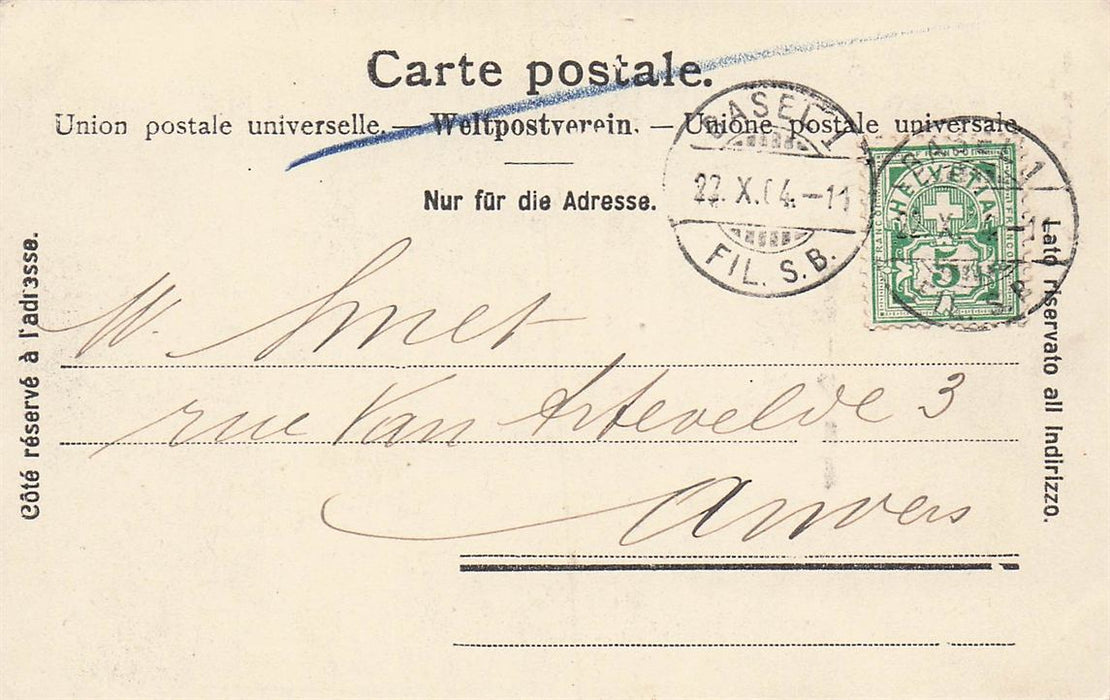 Carte postale.
Union postale universelle. — Weltpostverein. — Unione postale universale
Nur für die Adresse.
Côté réservé à l'adresse.
Lato riservato all Indirizzo.
BASEL 1
22. X. 04. – 11
FIL. S. B.
HELVETIA
FRANCO
FRANCO
5
BASEL 1
FIL. S. B.
M. Smet
rue Van Artevelde 3
Anvers